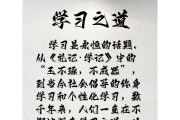 学习之道
学习是老恒的话题、
从《礼记·学记》中的
"玉不琢，不成器"，
到当今社会倡导的终身
学习和个性化学习，数
千年来，人们一直在不